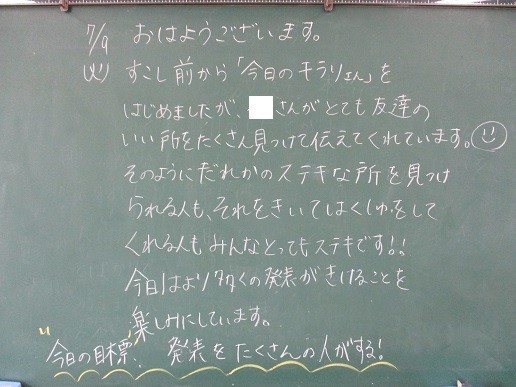 7/9 おはようございます。
(火) すこし前から「今日のキラリさん」を
はじめましたが、さんがとても友達の
いい所をたくさん見つけて伝えてくれています。
そのようにだれかのステキな所を見つけ
られる人も、それをきいてはくしゅをして
くれる人もみんなとってもステキです!!
今日はより多くの発表がきけることを
楽しみにしています。
今日の目標: 発表をたくさんの人がする!